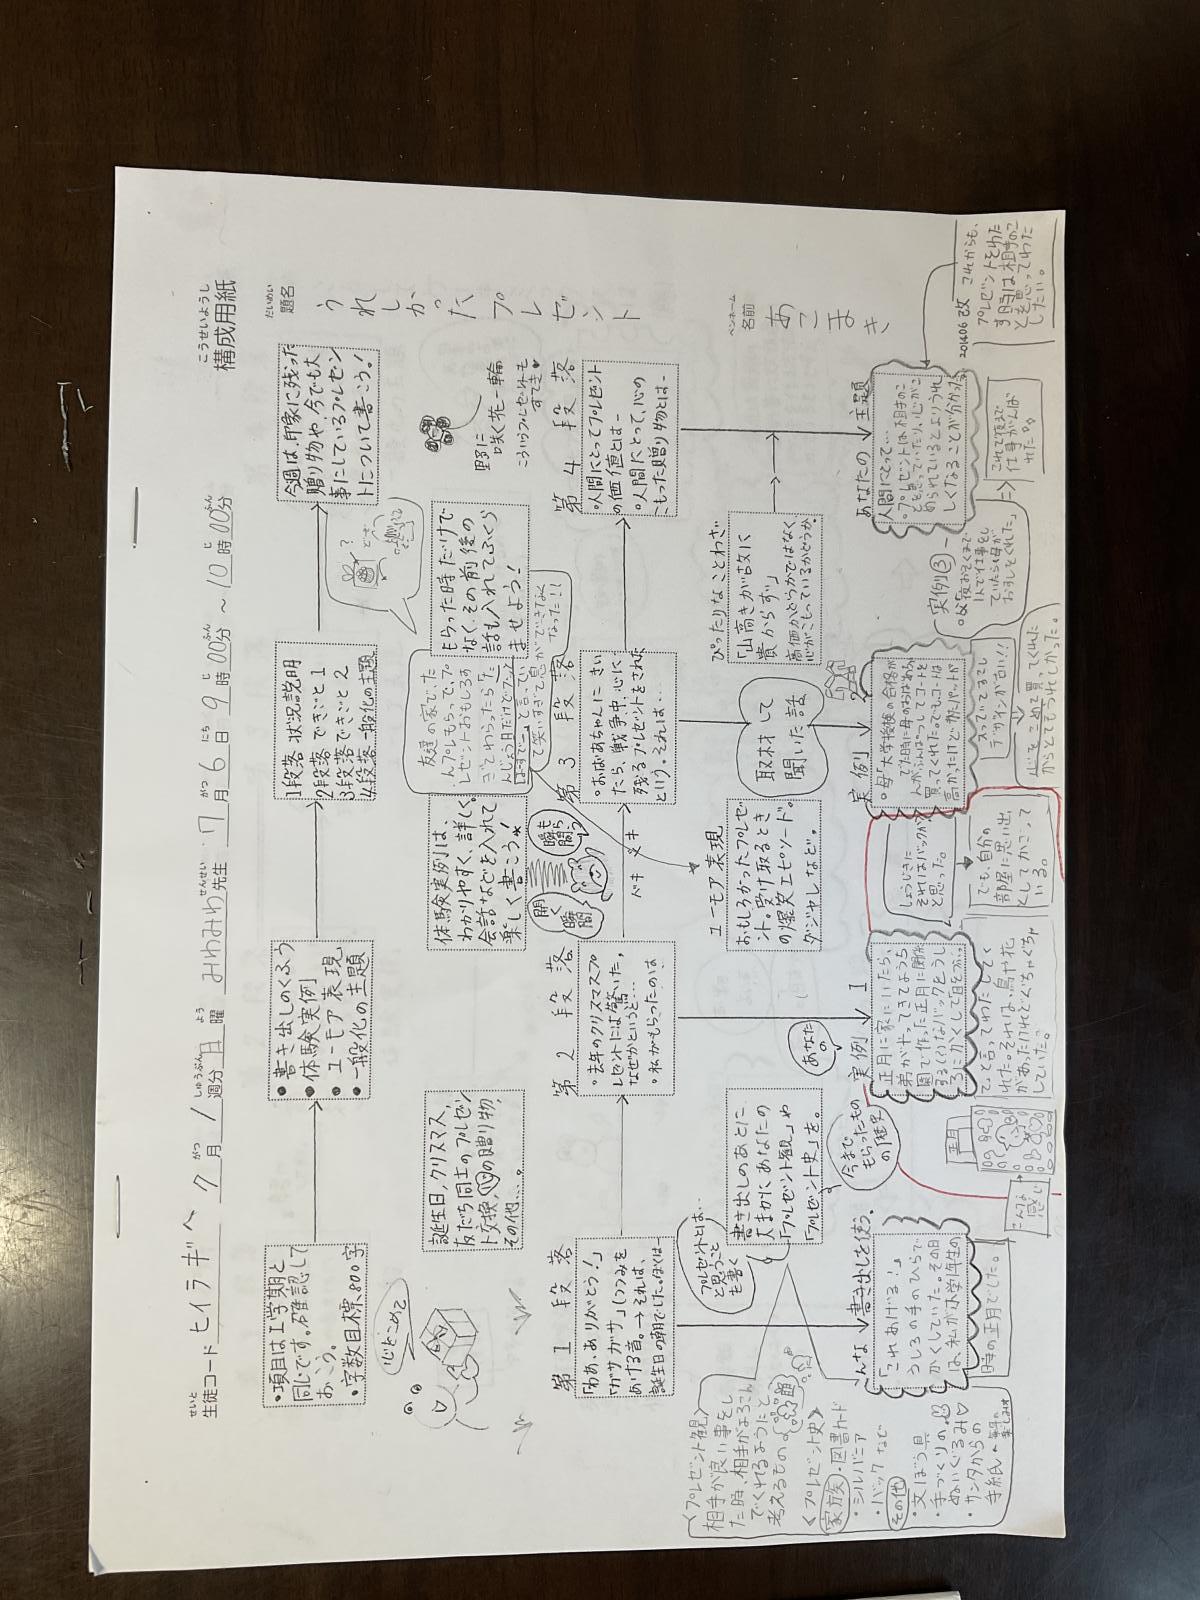 こうせいようし
構成用紙
せいと
生徒コード ヒイラギへ 7月 1週分 日曜 みわみわ先生・7月6日9時00分～10時00分
がつ しゅうぶん よう せんせい がつ にち じ ふん じ ふん
だいめい
題名
うれしかったプレゼント
ペンネーム
名前
あこまき
・項目は1学期と
同じです。確認して
おこう。
・字数目標800字
● 書き出しのくふう
● 体験実例
● ユーモア表現
● 一般化の主題
1段落 状況説明
2段落 できごと1
3段落 できごと2
4段落 一般化の主題
今週は、印象に残った
贈り物や、今でも大
事にしているプレゼン
トについて書こう！
心をこめて
誕生日、クリスマス、
友だち同士のプレゼン
ト交換、
の贈り物、
その他…。
体験実例は、
わかりやすく、詳しく。
会話などを入れて
楽しく書こう！
開く瞬間
友達の家で、た
もらった時だけで
なく、その前後の
話も入れてふくら
ませよう！
野に
咲く花一輪
こういうプレゼントも
すてき
第1段落
「わあ、ありがとう！」
「ガサガサ」（つつみを
あける音。→それは、
誕生日の朝でした。ぼくは―
第2段落
・去年のクリスマスプ
レゼントには驚いた。
なぜかというと…
・私がもらったのは…
第3段落
・おばあちゃんにきい
たら、戦争中、心に
残るプレゼントをされた
という。それは…
第4段落
・人間にとってプレゼント
の価値とは―
・人間にとって、心の
こもった贈り物とは―
プレゼントとは…
と思うこと
も書く
書き出しのあとに
大まかにあなたの
「プレゼント観」や
「プレゼント史」を。
今まで
もらったもの
の歴史
ユーモア表現
おもしろかったプレゼ
ント。受け取るとき
の爆笑エピソード。
ダジャレなど。
取材して
聞いた話
ぴったりなことわざ
「山高きが故に
貴からず」
高価かどうかではなく、
心がこもっているかどうか。
<プレゼント観>
相手が良い事をし
た時、相手がよろこん
でくれるようにと
考えるもの
<プレゼント史>
家族
・図書カード
・シルバニア
・バックなど
その他
・文ぼう具
・手づくりの
ぬいぐるみ♡
・サンタからの
手紙
こんな書き出しを使う。
「これあげる！」
うしろの手のひらで
かくしていた。その日
は、私が小学1年生の
時の正月でした。
こんな
感じ
あなたの
実例1
正月に家にいたら、
弟がやってきてようち
園で作った正月に関係
するバックをうし
ろにかくして
て。と言ってわたしてく
れた。それは、鳥や花
があったけれどぐちゃぐちゃ
していた。
しょうじきに
それはバックか？
と思った。
でも、自分の
部屋に思い出
としてかざって
いる。
実例2
・母「大学受検の合格が
でた時に母のおばあちゃ
んがふんぱつしてコートを
買ってくれた。でもコートは
高かったけどかたパットが
入っていてさらに
デザインが古い！！
心をこめて買ってくれた
からとてもうれしかった。
実例③
・父「夜おそくまで
1人で仕事をし
ていたら母が
おすしをくれた」
これで夜まで
仕事がんば
れた。
あなたの主題
人間にとって…
・プレゼントは相手のこ
とを思っていたり、心がこ
められているとよりうれ
しくなることが分かった
201606改
これからも、
プレゼントをわた
す時は相手のこ
とを思ってわた
したい。